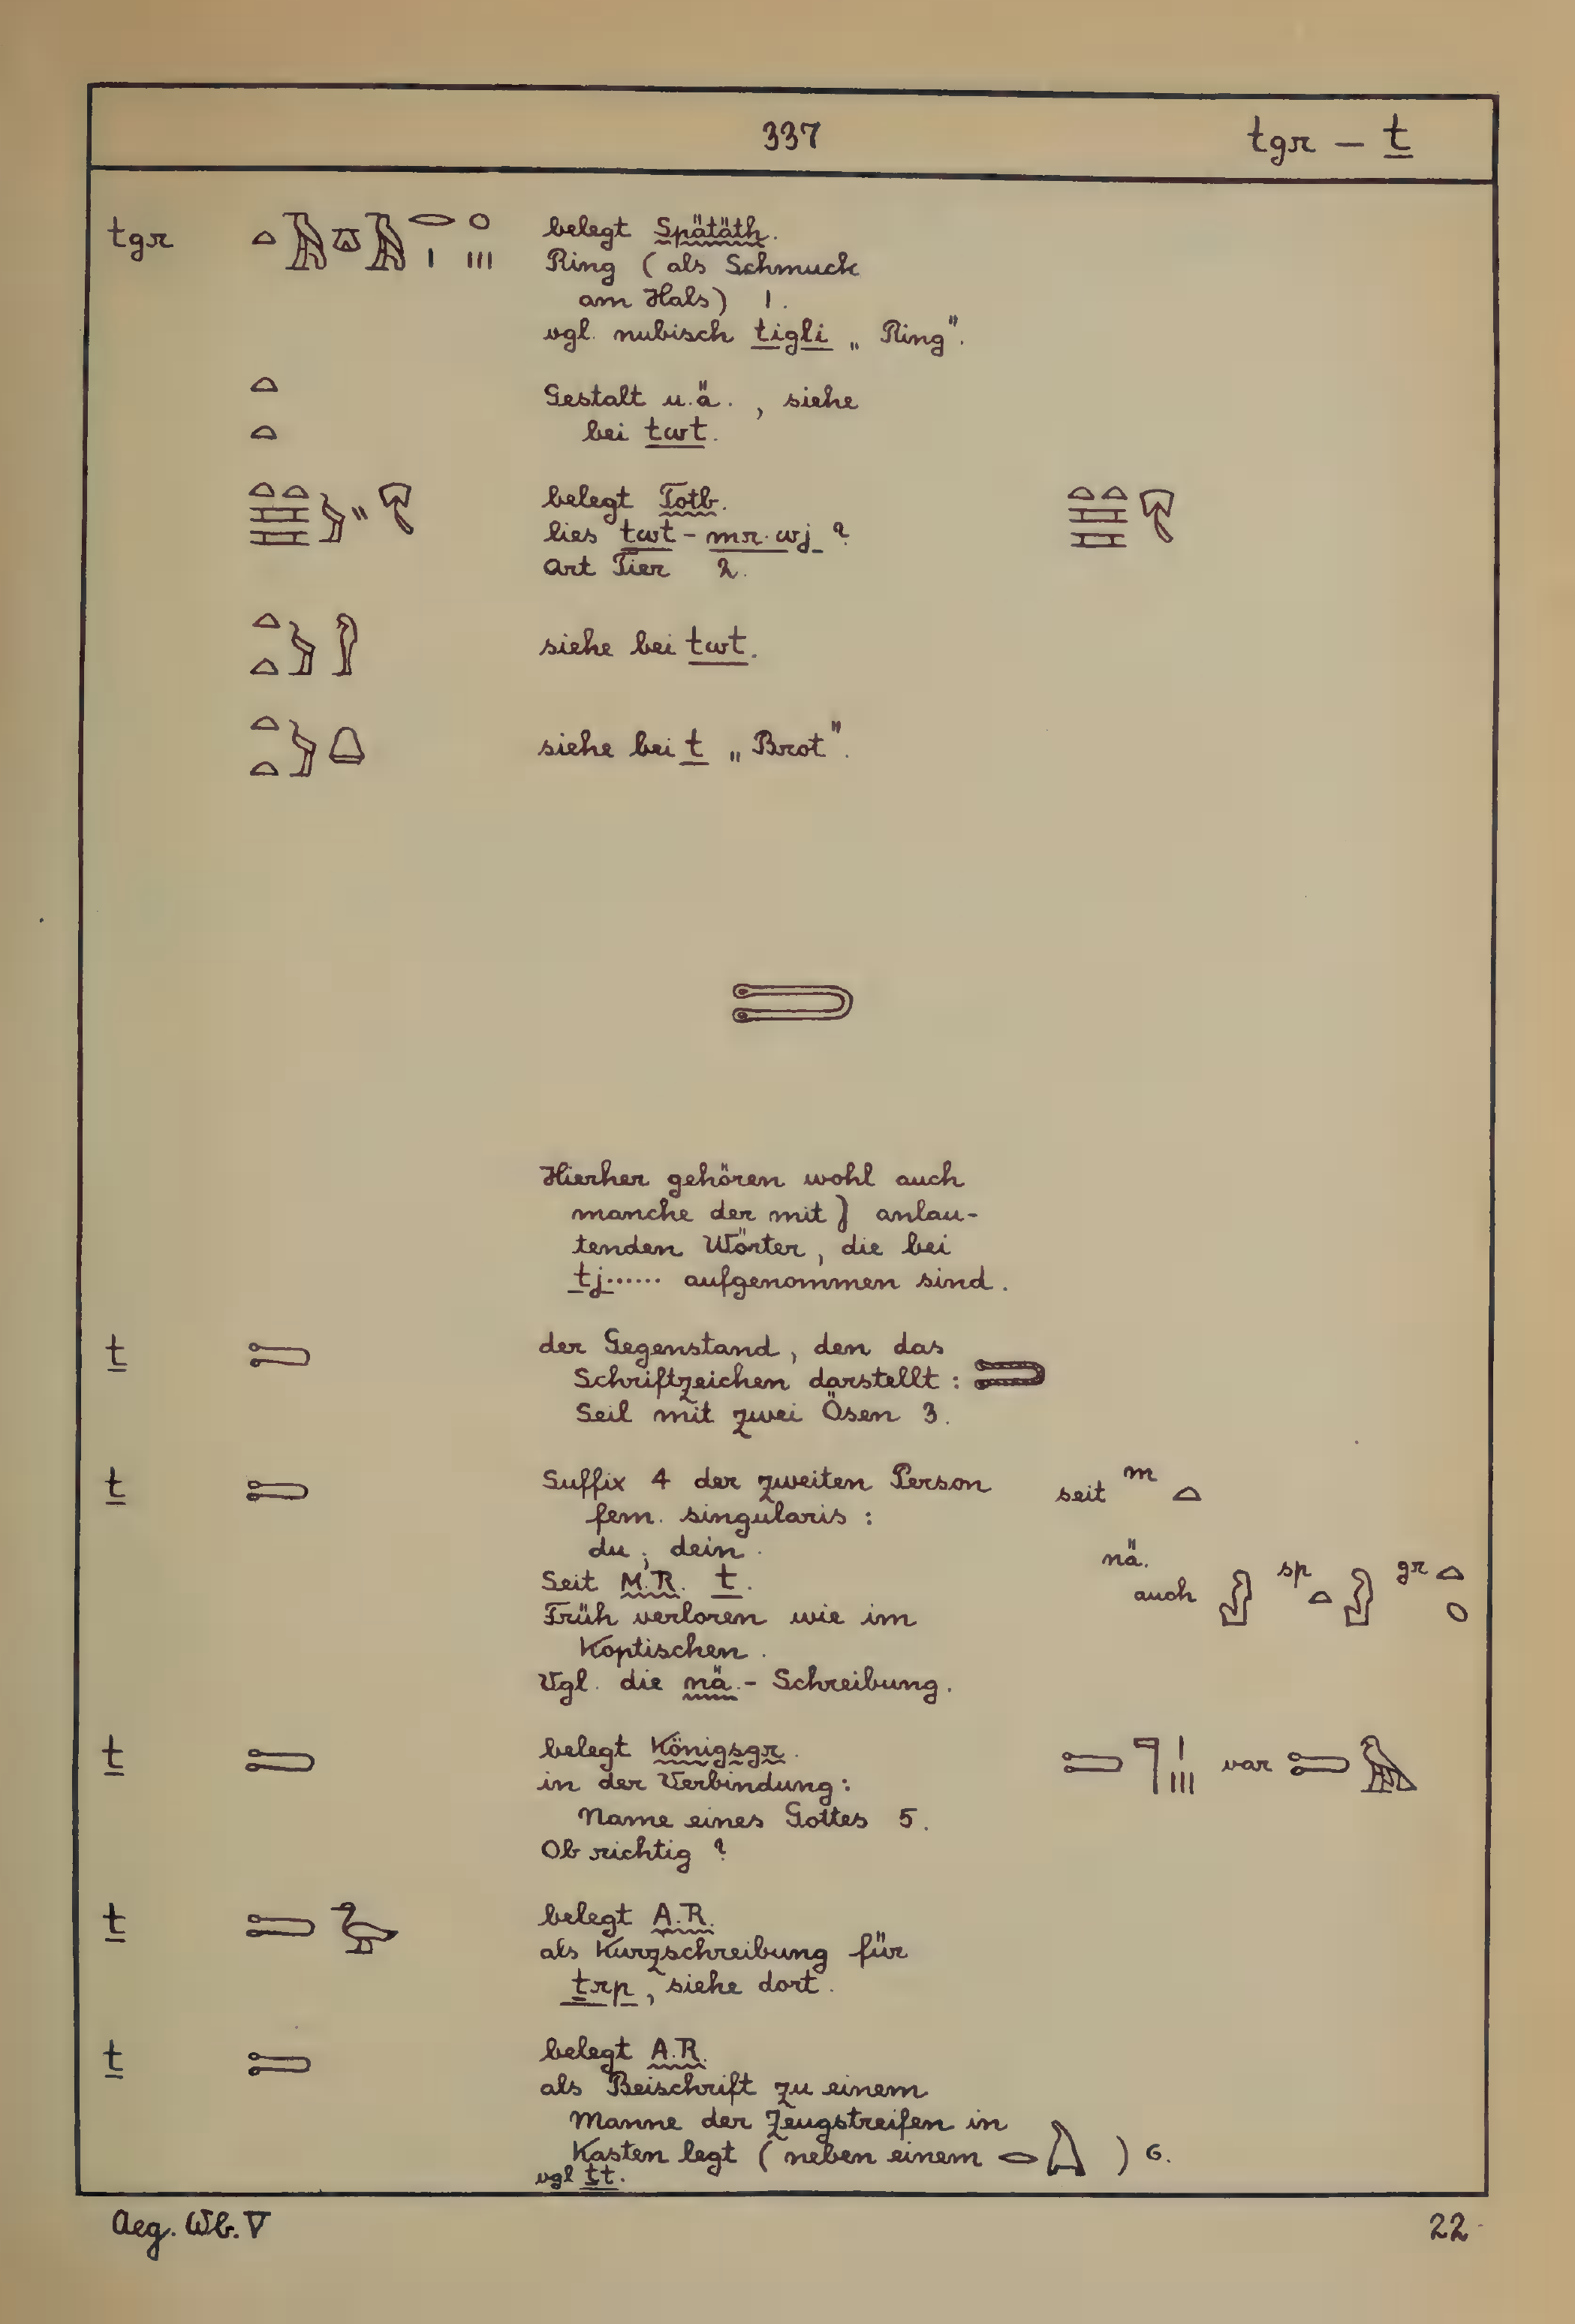 337
tgr — ṯ
tgr belegt Spätäth.
Ring (als Schmuck
am Hals) 1.
vgl. nubisch tigli „Ring".
Gestalt u.ä., siehe
bei twt.
belegt Totb.
lies twt-mr.wj ?
Art Tier 2.
siehe bei twt.
siehe bei t „Brot".
Hierher gehören wohl auch
manche der mit anlau-
tenden Wörter, die bei
tj...... aufgenommen sind.
ṯ der Gegenstand, den das
Schriftzeichen darstellt:
Seil mit zwei Ösen 3.
ṯ Suffix 4 der zweiten Person seit m
fem. singularis:
du; dein.
nä. auch sp gr
Seit M.R. t.
Früh verloren wie im
Koptischen.
Vgl. die nä.-Schreibung.
ṯ belegt Königsgr. var
in der Verbindung:
Name eines Gottes 5.
Ob richtig?
ṯ belegt A.R.
als Kurzschreibung für
ṯrp, siehe dort.
ṯ belegt A.R.
als Beischrift zu einem
Manne der Zeugstreifen in
Kasten legt (neben einem ) 6.
vgl ṯt.
Aeg. Wb. V
22